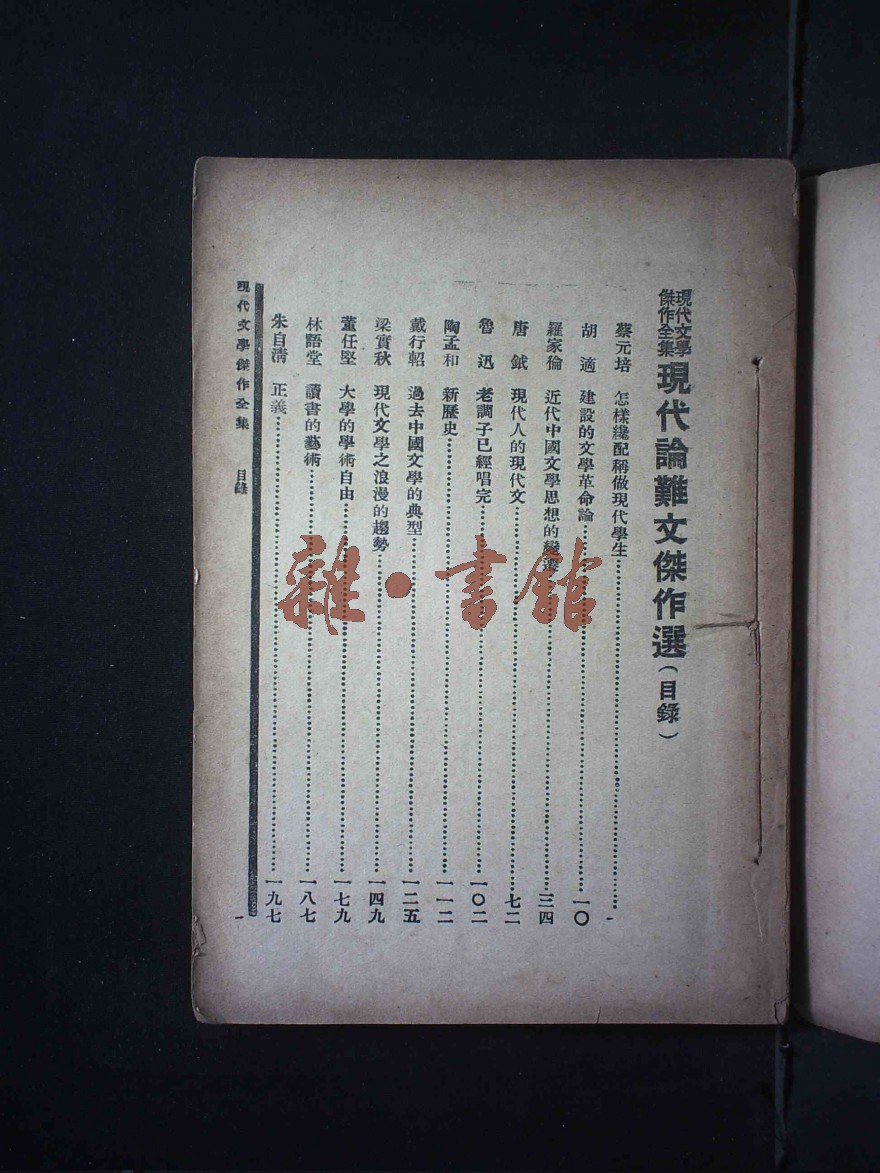 現代文學傑作全集 現代論難文傑作選(目錄)
蔡元培 怎樣纔配稱做現代學生……一
胡適 建設的文學革命論……一〇
羅家倫 近代中國文學思想的變遷……三四
唐鉞 現代人的現代文……七二
魯迅 老調子已經唱完……一〇二
陶孟和 新歷史……一一二
戴行軺 過去中國文學的典型……一二五
梁實秋 現代文學之浪漫的趨勢……一四九
董任堅 大學的學術自由……一七九
林語堂 讀書的藝術……一八七
朱自清 正義……一九七
現代文學傑作全集 目錄 一
雜·書館